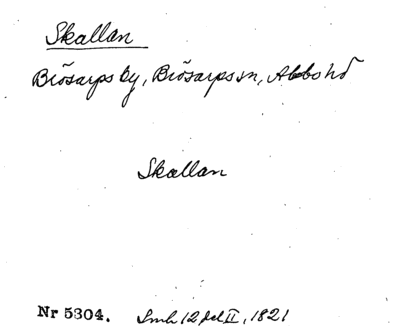 Skallan
Brösarps by, Brösarps sn, Albo hd
Skallan
Nr 5304. Smh 12 fol II, 1821